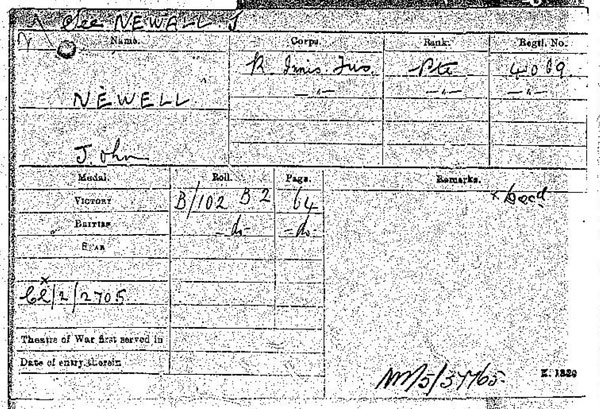 See NEWELL J
Name. Corps. Rank. Regtl. No.
R. Innis. Fus. Pte 4069
NEWELL -"- -"- -"-
John
Medal. Roll. Page. Remarks.
VICTORY B/102 B2 64 x Decd
BRITISH -do- -do-
STAR
x
/2/2705
Theatre of War first served in
Date of entry therein
/5/37765 K. 1380